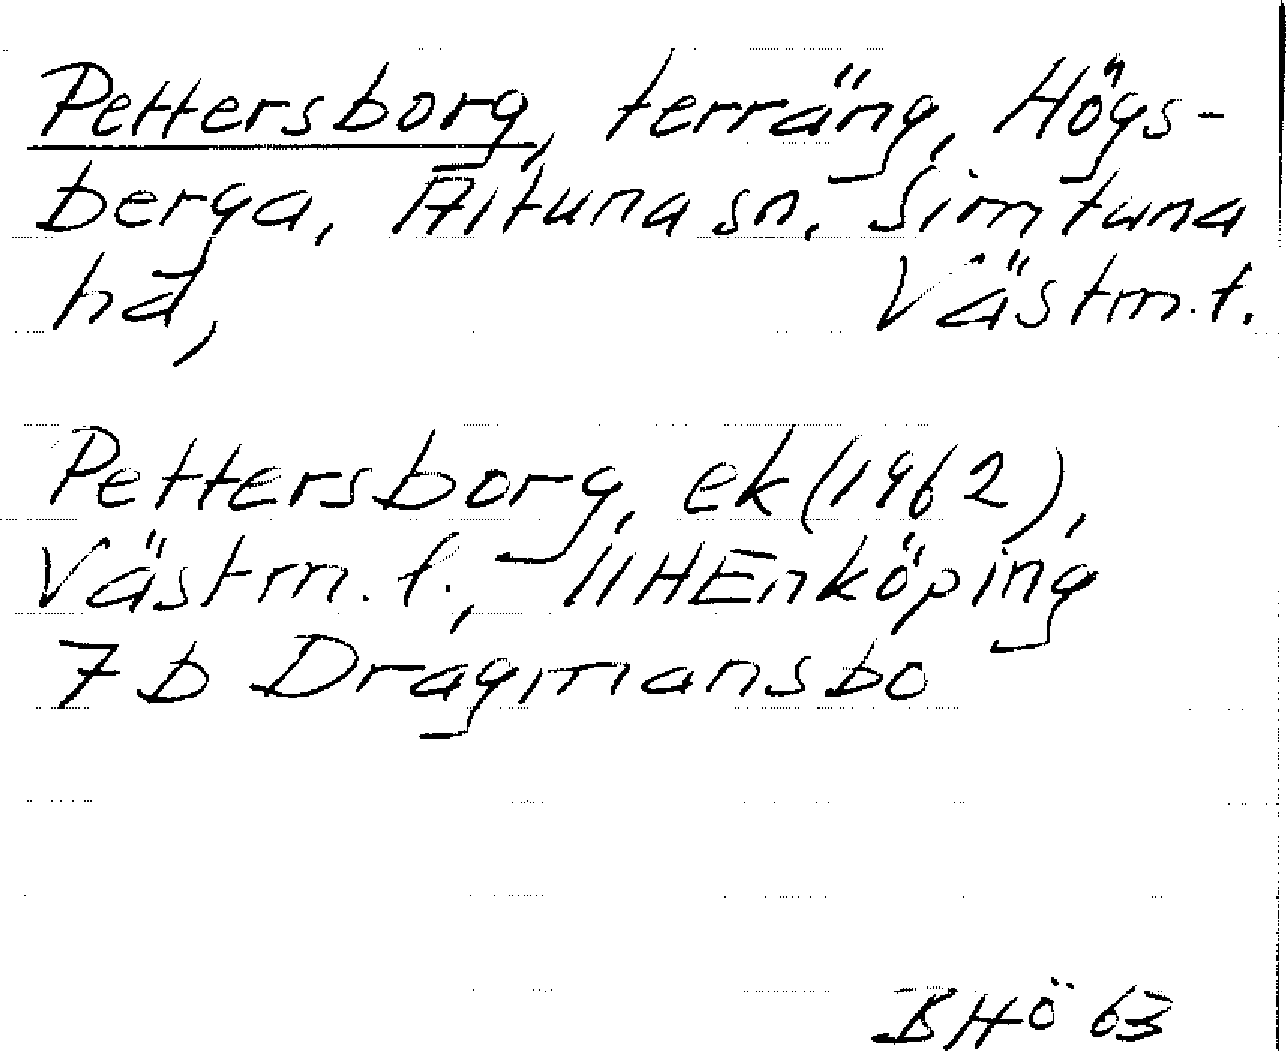 Pettersborg, terräng, Högs-
berga, Altuna sn. Simtuna
hd, Västm.l.
Pettersborg, ek (1962),
Västm. l., 11HEnköping
7b Dragmansbo
BHÖ 63